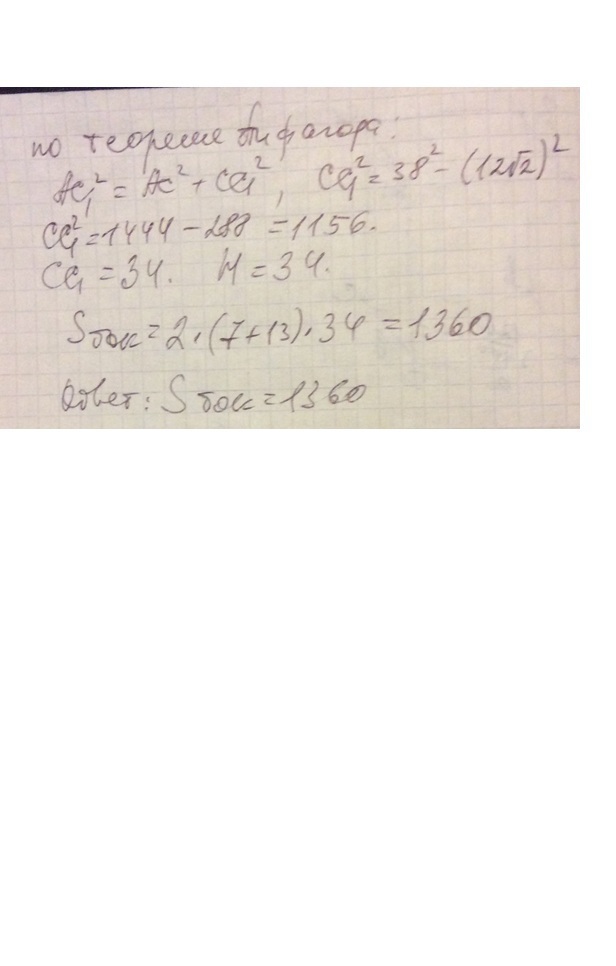 по теореме Пифагора:
AC₁² = AC² + CC₁², CC₁² = 38² - (12√2)²
CC₁² = 1444 - 288 = 1156.
CC₁ = 34. H = 34.
Sбок = 2·(7+13)·34 = 1360
Ответ: Sбок = 1360